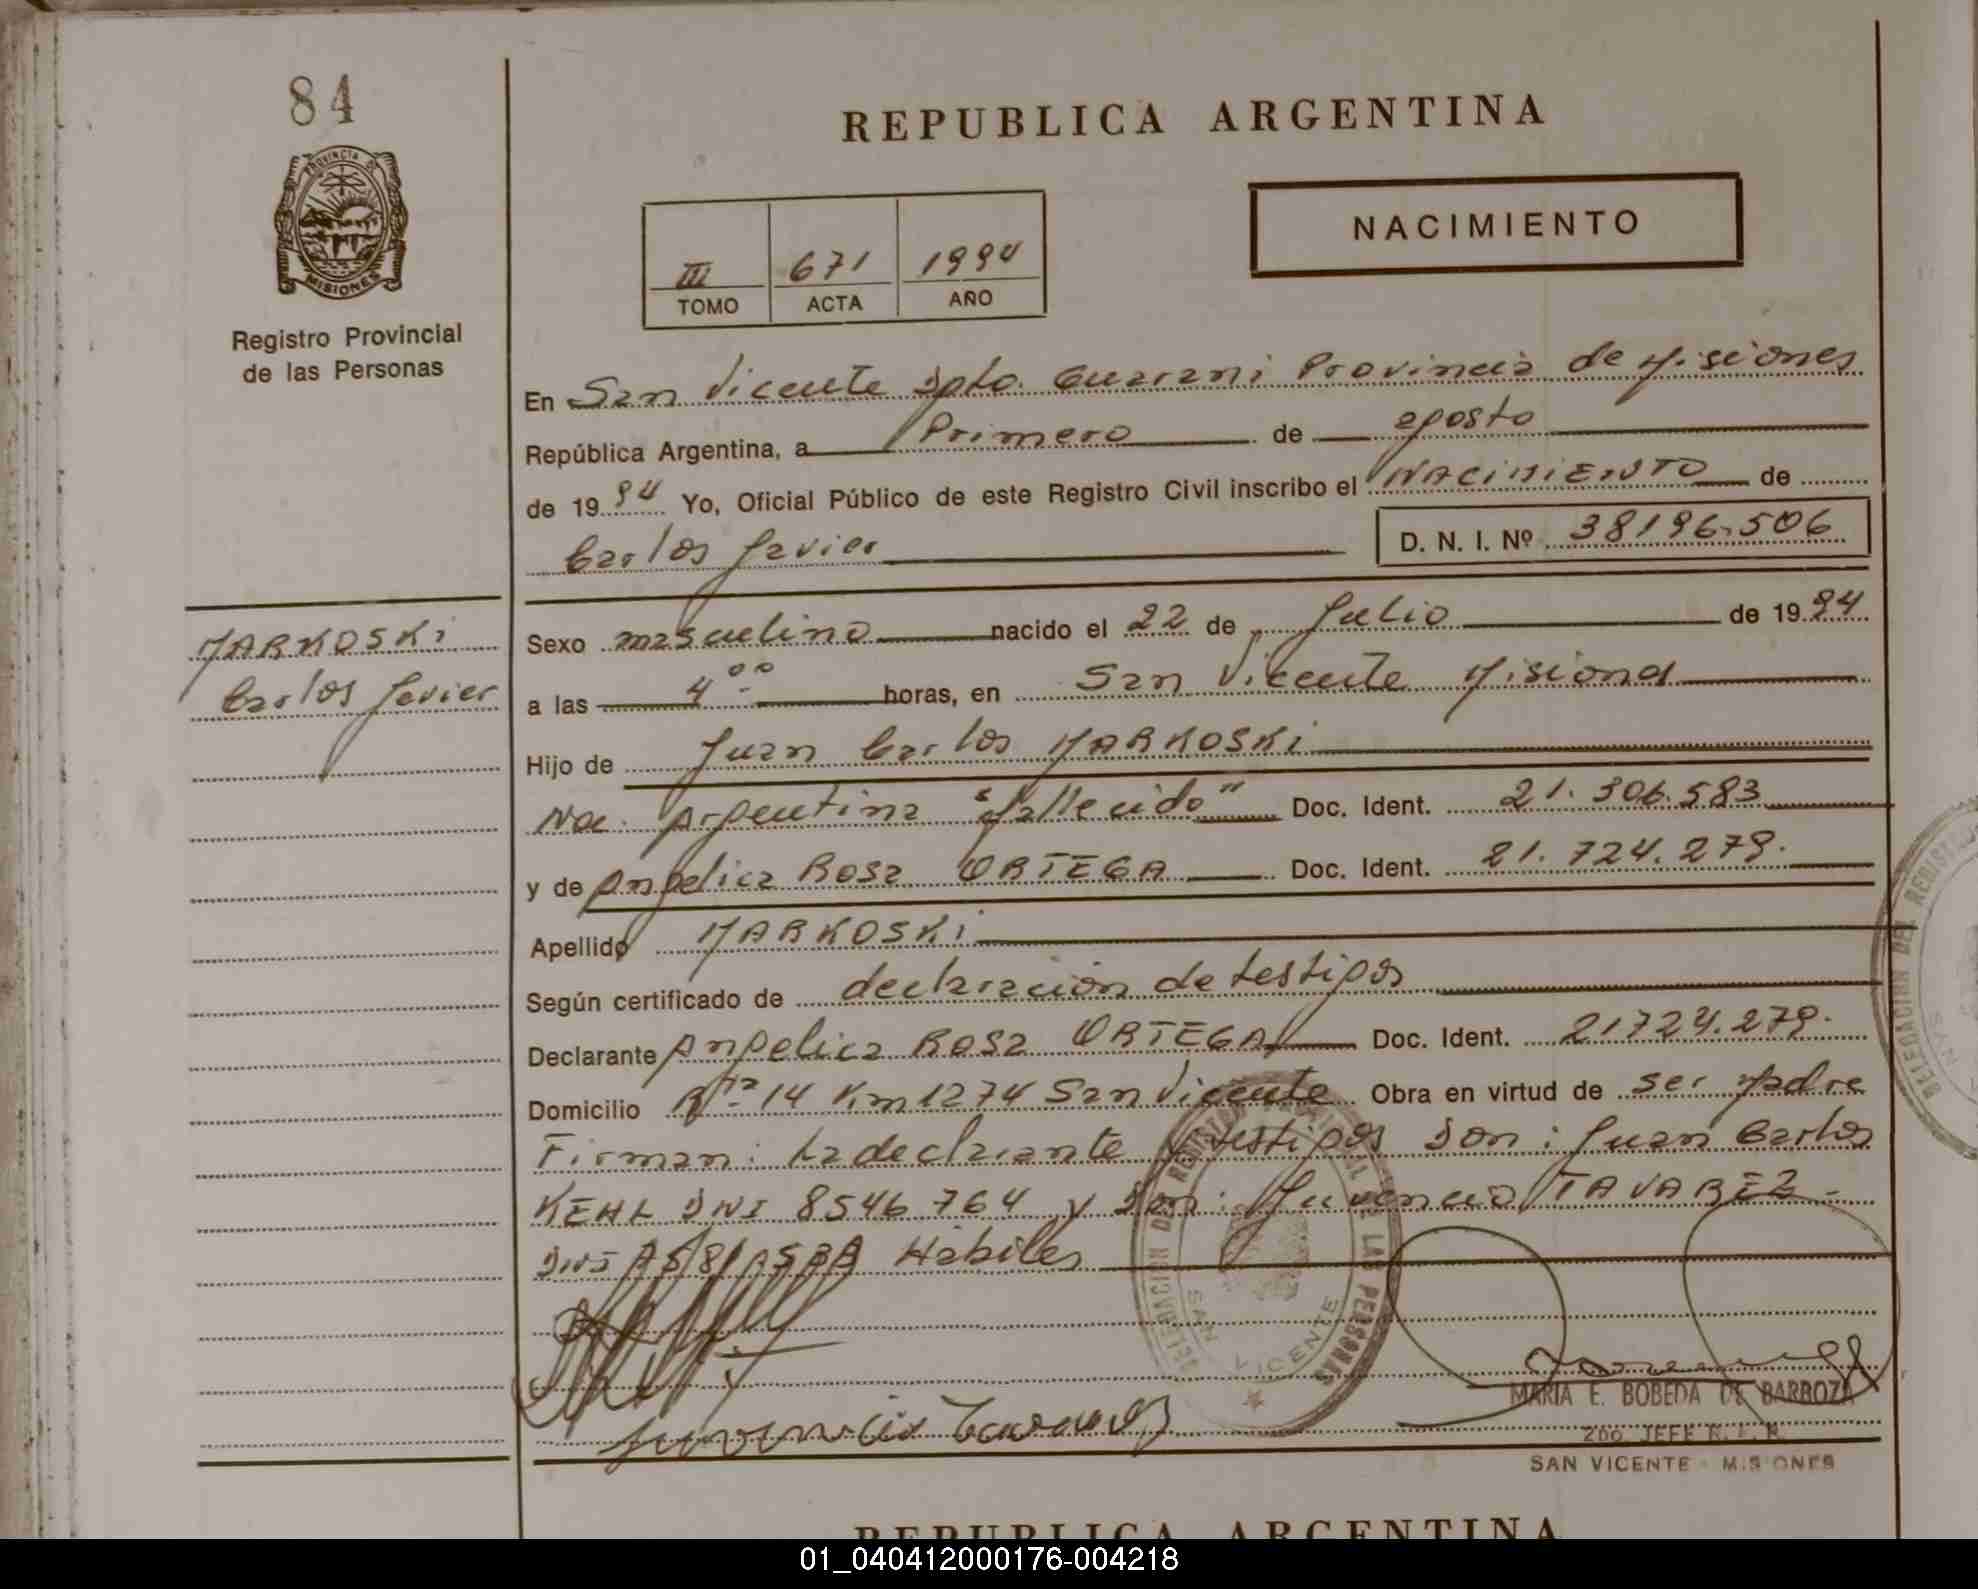 84
PROVINCIA DE
MISIONES
Registro Provincial
de las Personas
REPUBLICA ARGENTINA
NACIMIENTO
III 671 1994
TOMO ACTA AÑO
En San Vicente Dpto. Guarani Provincia de Misiones
República Argentina, a Primero de agosto
de 1994 Yo, Oficial Público de este Registro Civil inscribo el NACIMIENTO de
Carlos Javier D. N. I. Nº 38196.506
MARKOSKi
Carlos Javier
Sexo masculino nacido el 22 de Julio de 1994
a las 4 00 horas, en San Vicente Misiones
Hijo de Juan Carlos MARKOSKi
Nac. Argentina "fallecido" Doc. Ident. 21.306.583
y de Angelica Rosa ORTEGA Doc. Ident. 21.724.279.
Apellido MARKOSKi
Según certificado de declaracion de testigos
Declarante Angelica Rosa ORTEGA Doc. Ident. 21724.279.
Domicilio Rta 14 Km 1274 San Vicente Obra en virtud de ser Madre
Firman: La declarante y testigos Don: Juan Carlos
KEHL DNI 8546764 y Don: Juvencio TAVAREZ -
DNI Habiles
Juvencio Tavarez
DELEGACION DEL REGISTRO PROVINCIAL DE LAS PERSONAS
SAN VICENTE
DELEGACION DEL REGISTRO
MARIA E. BOBEDA DE BARBOZA
2do. JEFE R. P. P.
SAN VICENTE - MISIONES
REPUBLICA ARGENTINA
01_040412000176-004218